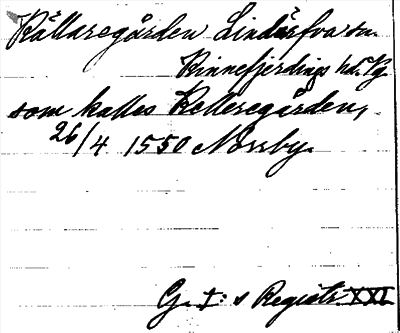 Källaregården Lindärfva sn.
Kinnefjerdings hd. Vg.
som kalles Kelleregården,
26/4 1550 Norrby.
G. I:s Registr. XXI.